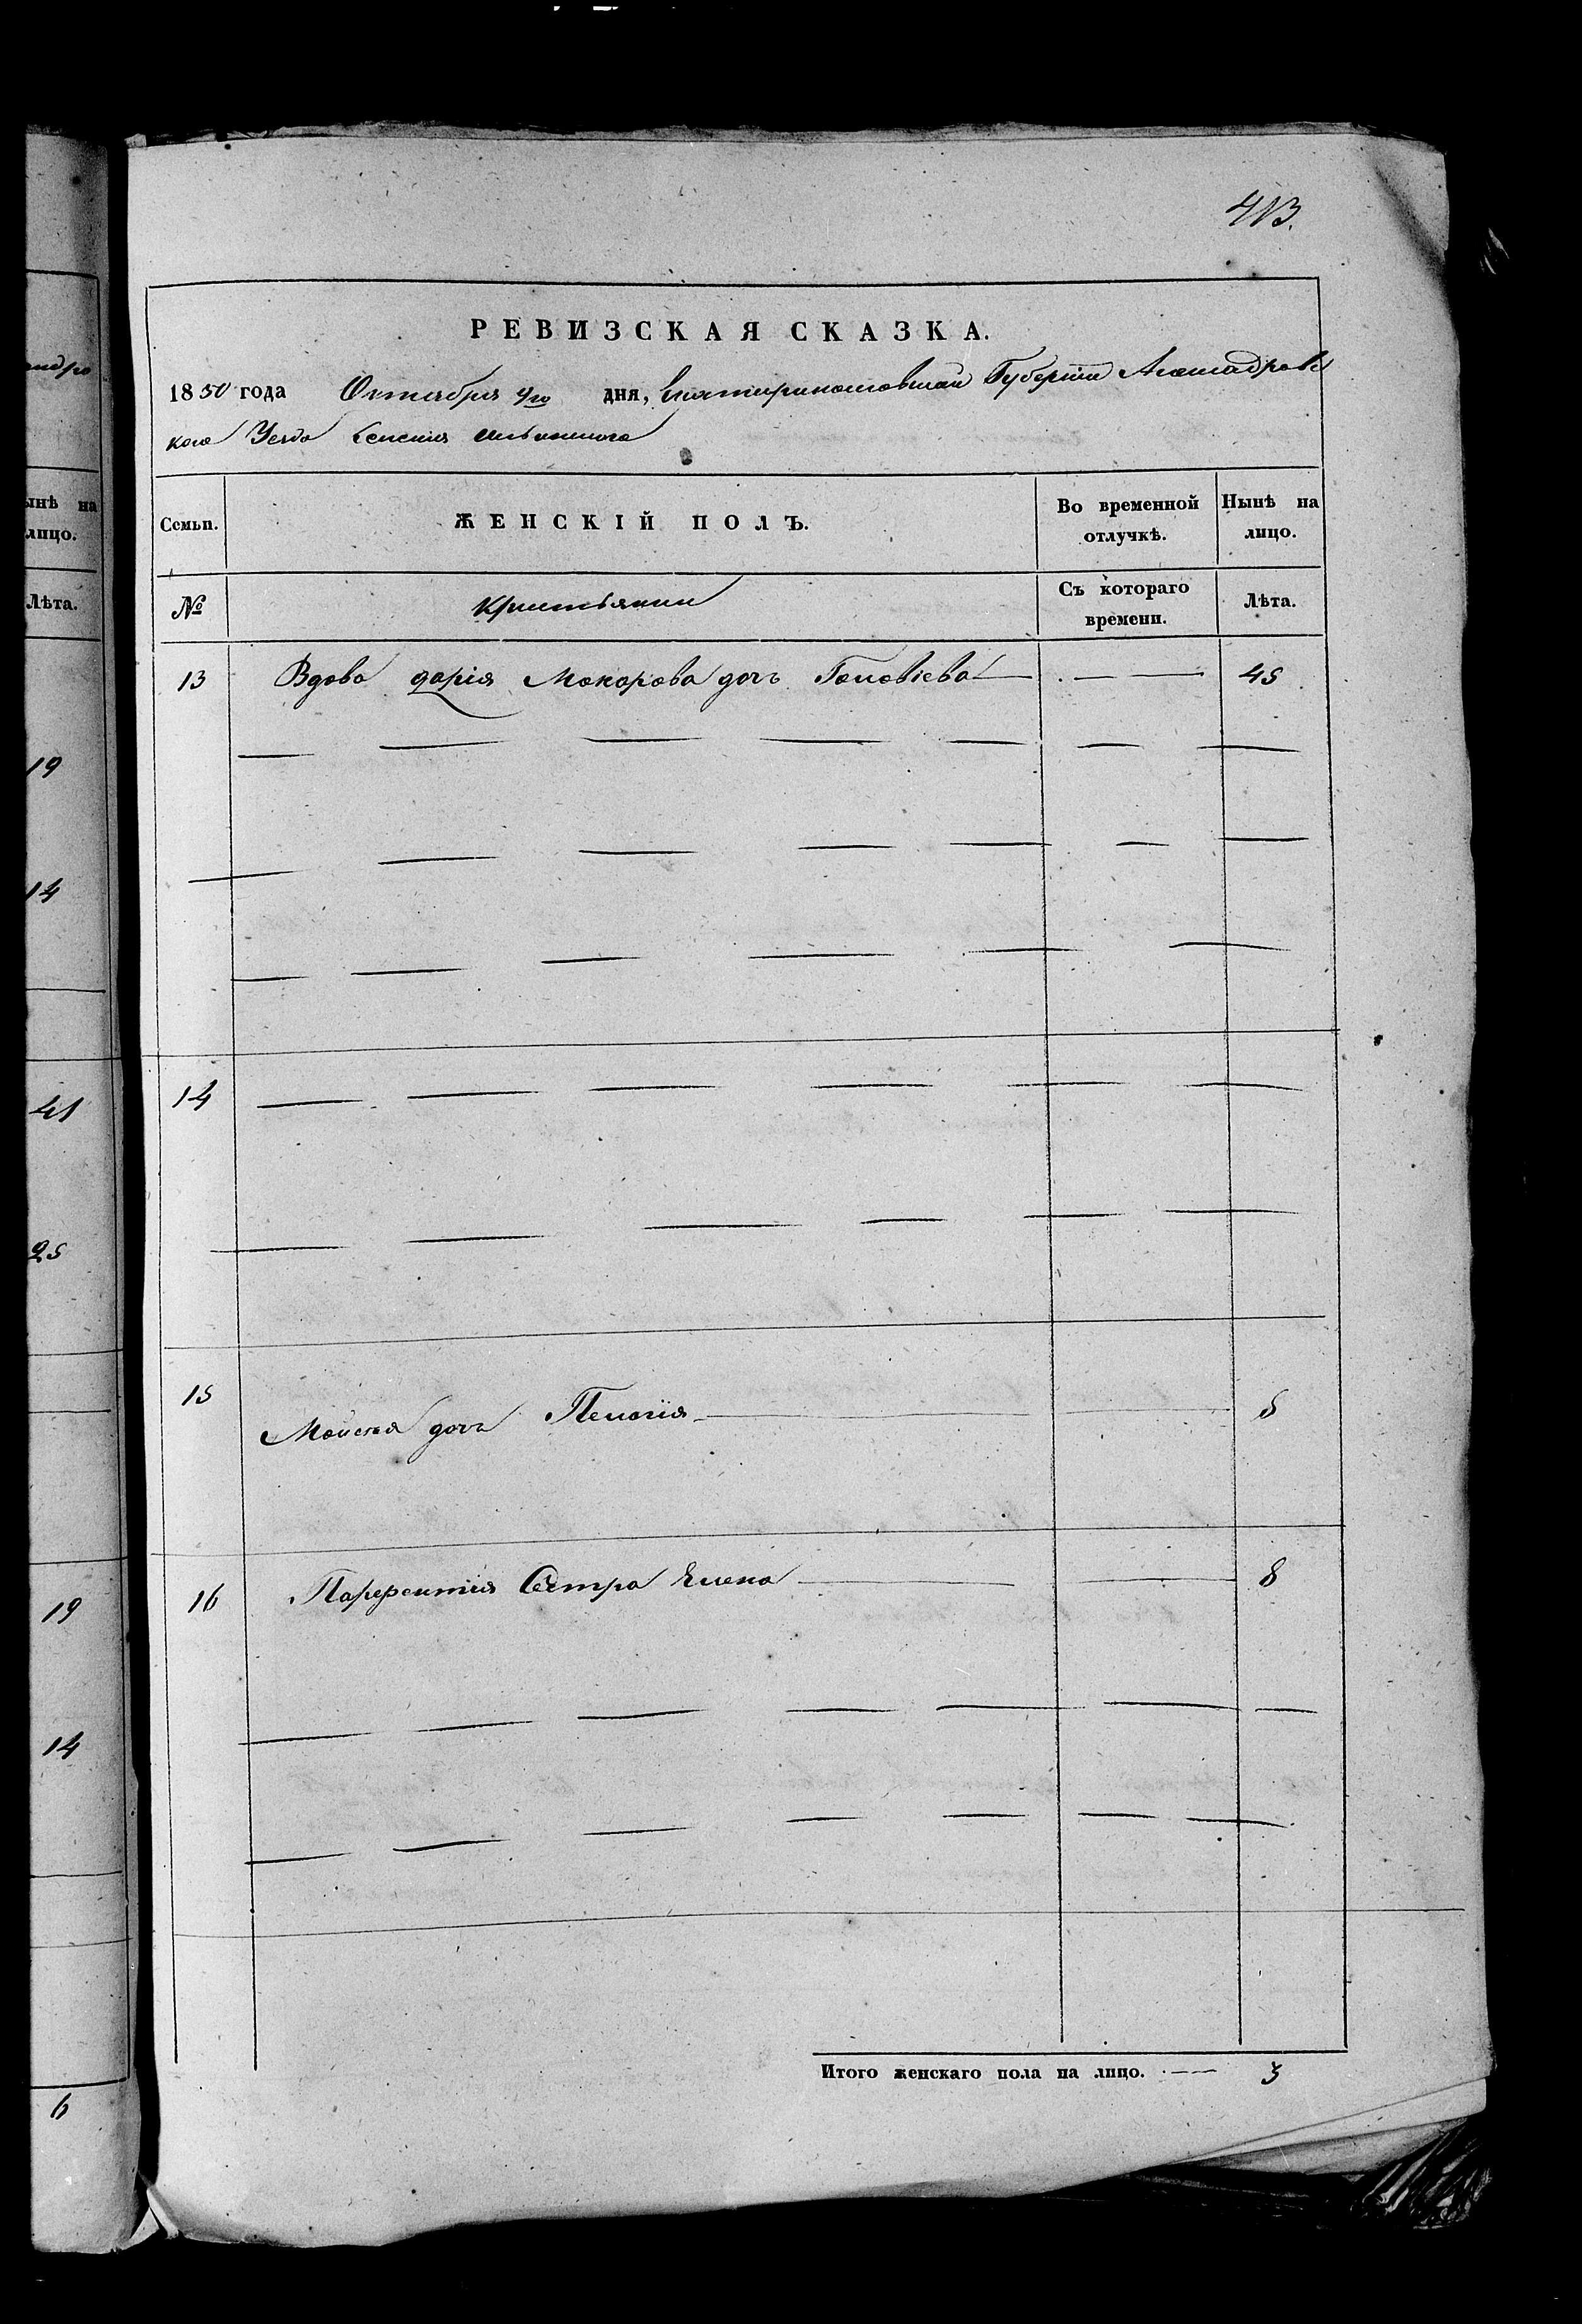 413.
РЕВИЗСКАЯ СКАЗКА.
1850 года Октября 9го дня, Екатеринославской Губернии Александровс
кого Уезда Селения
Семьи. ЖЕНСКІЙ ПОЛЪ. Во временной отлучкѣ. Нынѣ на лицо.
№ Съ котораго времени. Лѣта.
13 Вдова дарія Макарова дочь 45
14
15 Моисея дочь Пелагія 5
16 Сестра Елена 8
Итого женскаго пола на лицо. 3
ындро
ынѣ на
лицо.
Лѣта.
19
14
41
25
19
14
6